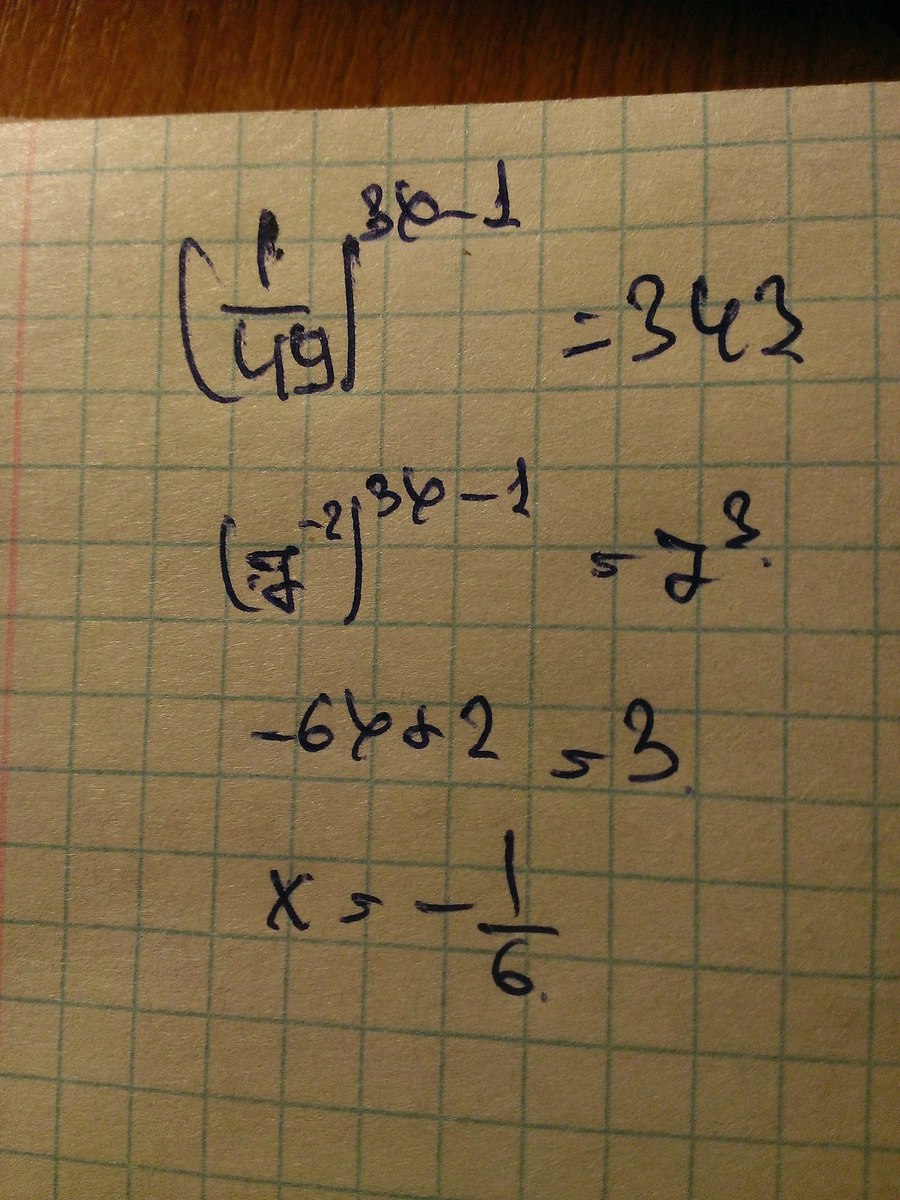 (1/49)^(3x-1) = 343
(7^(-2))^(3x-1) = 7^3.
-6x+2 = 3.
x = -1/6.